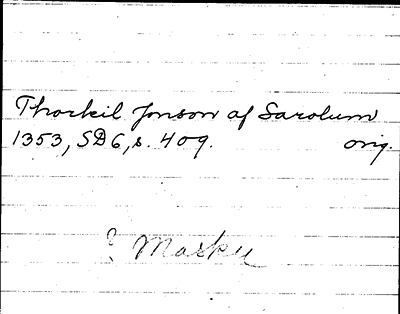 Thorkil Jonson af Sarolum
1353, SD6, s. 409. orig.
? Masku